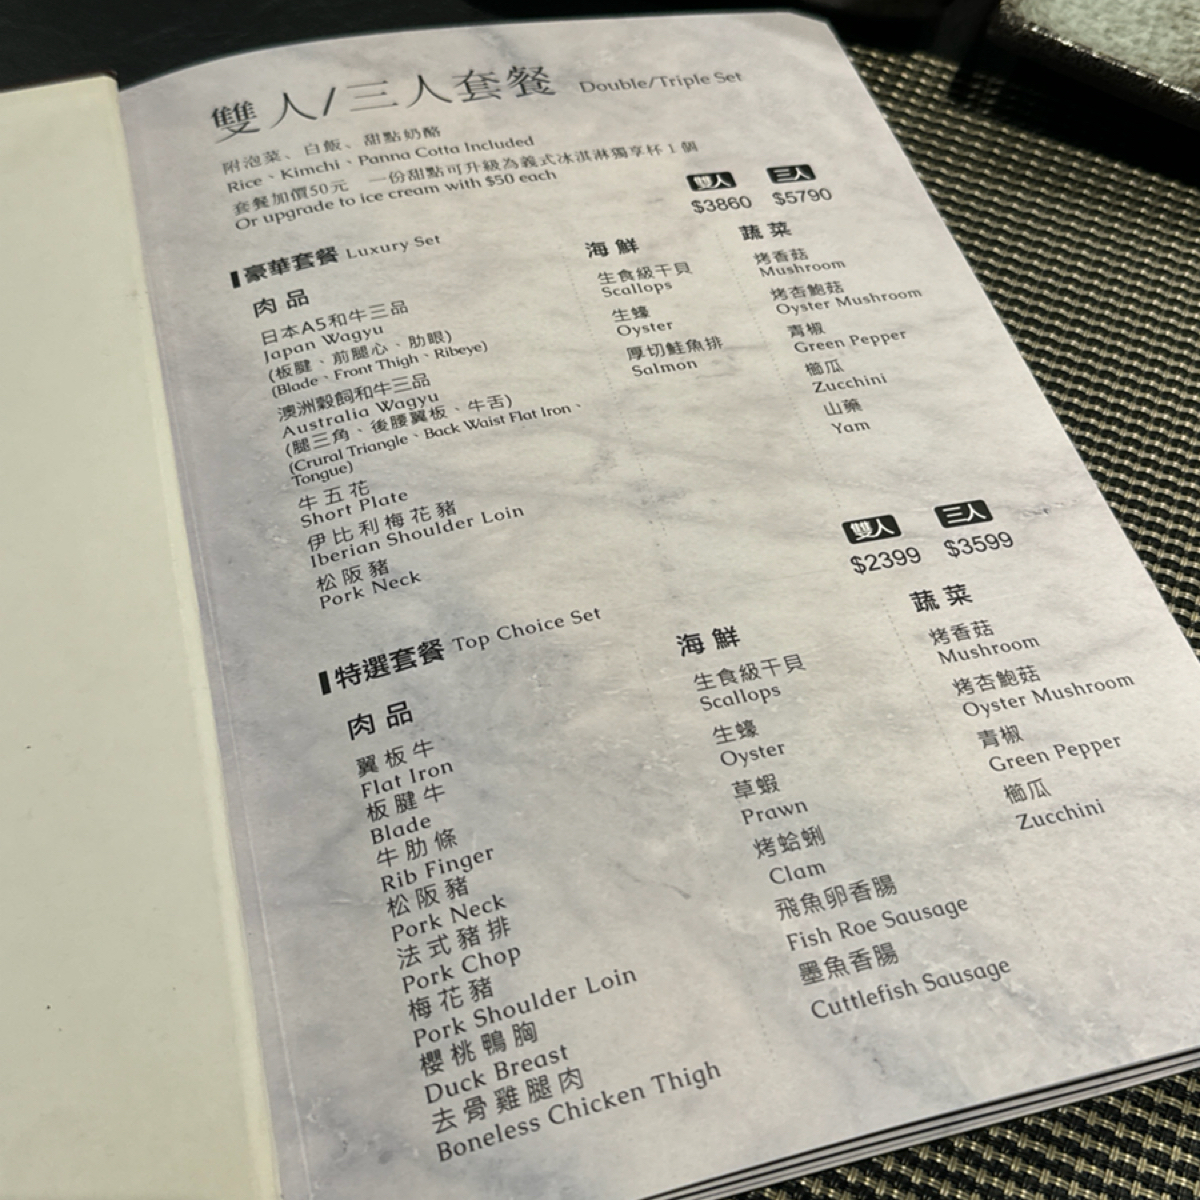 雙人/三人套餐 Double/Triple Set
附泡菜、白飯、甜點奶酪
Rice、Kimchi、Panna Cotta Included
套餐加價50元 一份甜點可升級為義式冰淇淋獨享杯1個
Or upgrade to ice cream with $50 each
雙人 三人
$3860 $5790
豪華套餐 Luxury Set
肉品
日本A5和牛三品
Japan Wagyu
(板腱、前腿心、肋眼)
(Blade、Front Thigh、Ribeye)
澳洲穀飼和牛三品
Australia Wagyu
(腿三角、後腰翼板、牛舌)
(Crural Triangle、Back Waist Flat Iron、
Tongue)
牛五花
Short Plate
伊比利梅花豬
Iberian Shoulder Loin
松阪豬
Pork Neck
海鮮
生食級干貝
Scallops
生蠔
Oyster
厚切鮭魚排
Salmon
蔬菜
烤香菇
Mushroom
烤杏鮑菇
Oyster Mushroom
青椒
Green Pepper
櫛瓜
Zucchini
山藥
Yam
雙人 三人
$2399 $3599
特選套餐 Top Choice Set
肉品
翼板牛
Flat Iron
板腱牛
Blade
牛肋條
Rib Finger
松阪豬
Pork Neck
法式豬排
Pork Chop
梅花豬
Pork Shoulder Loin
櫻桃鴨胸
Duck Breast
去骨雞腿肉
Boneless Chicken Thigh
海鮮
生食級干貝
Scallops
生蠔
Oyster
草蝦
Prawn
烤蛤蜊
Clam
飛魚卵香腸
Fish Roe Sausage
墨魚香腸
Cuttlefish Sausage
蔬菜
烤香菇
Mushroom
烤杏鮑菇
Oyster Mushroom
青椒
Green Pepper
櫛瓜
Zucchini